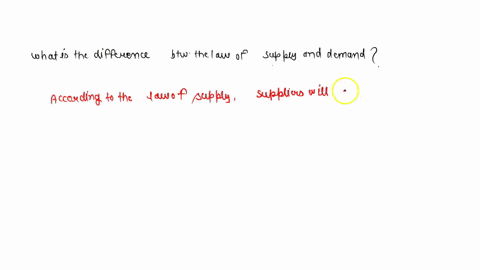 what is the difference btw. the law of supply and demand?
According to the law of supply, suppliers will